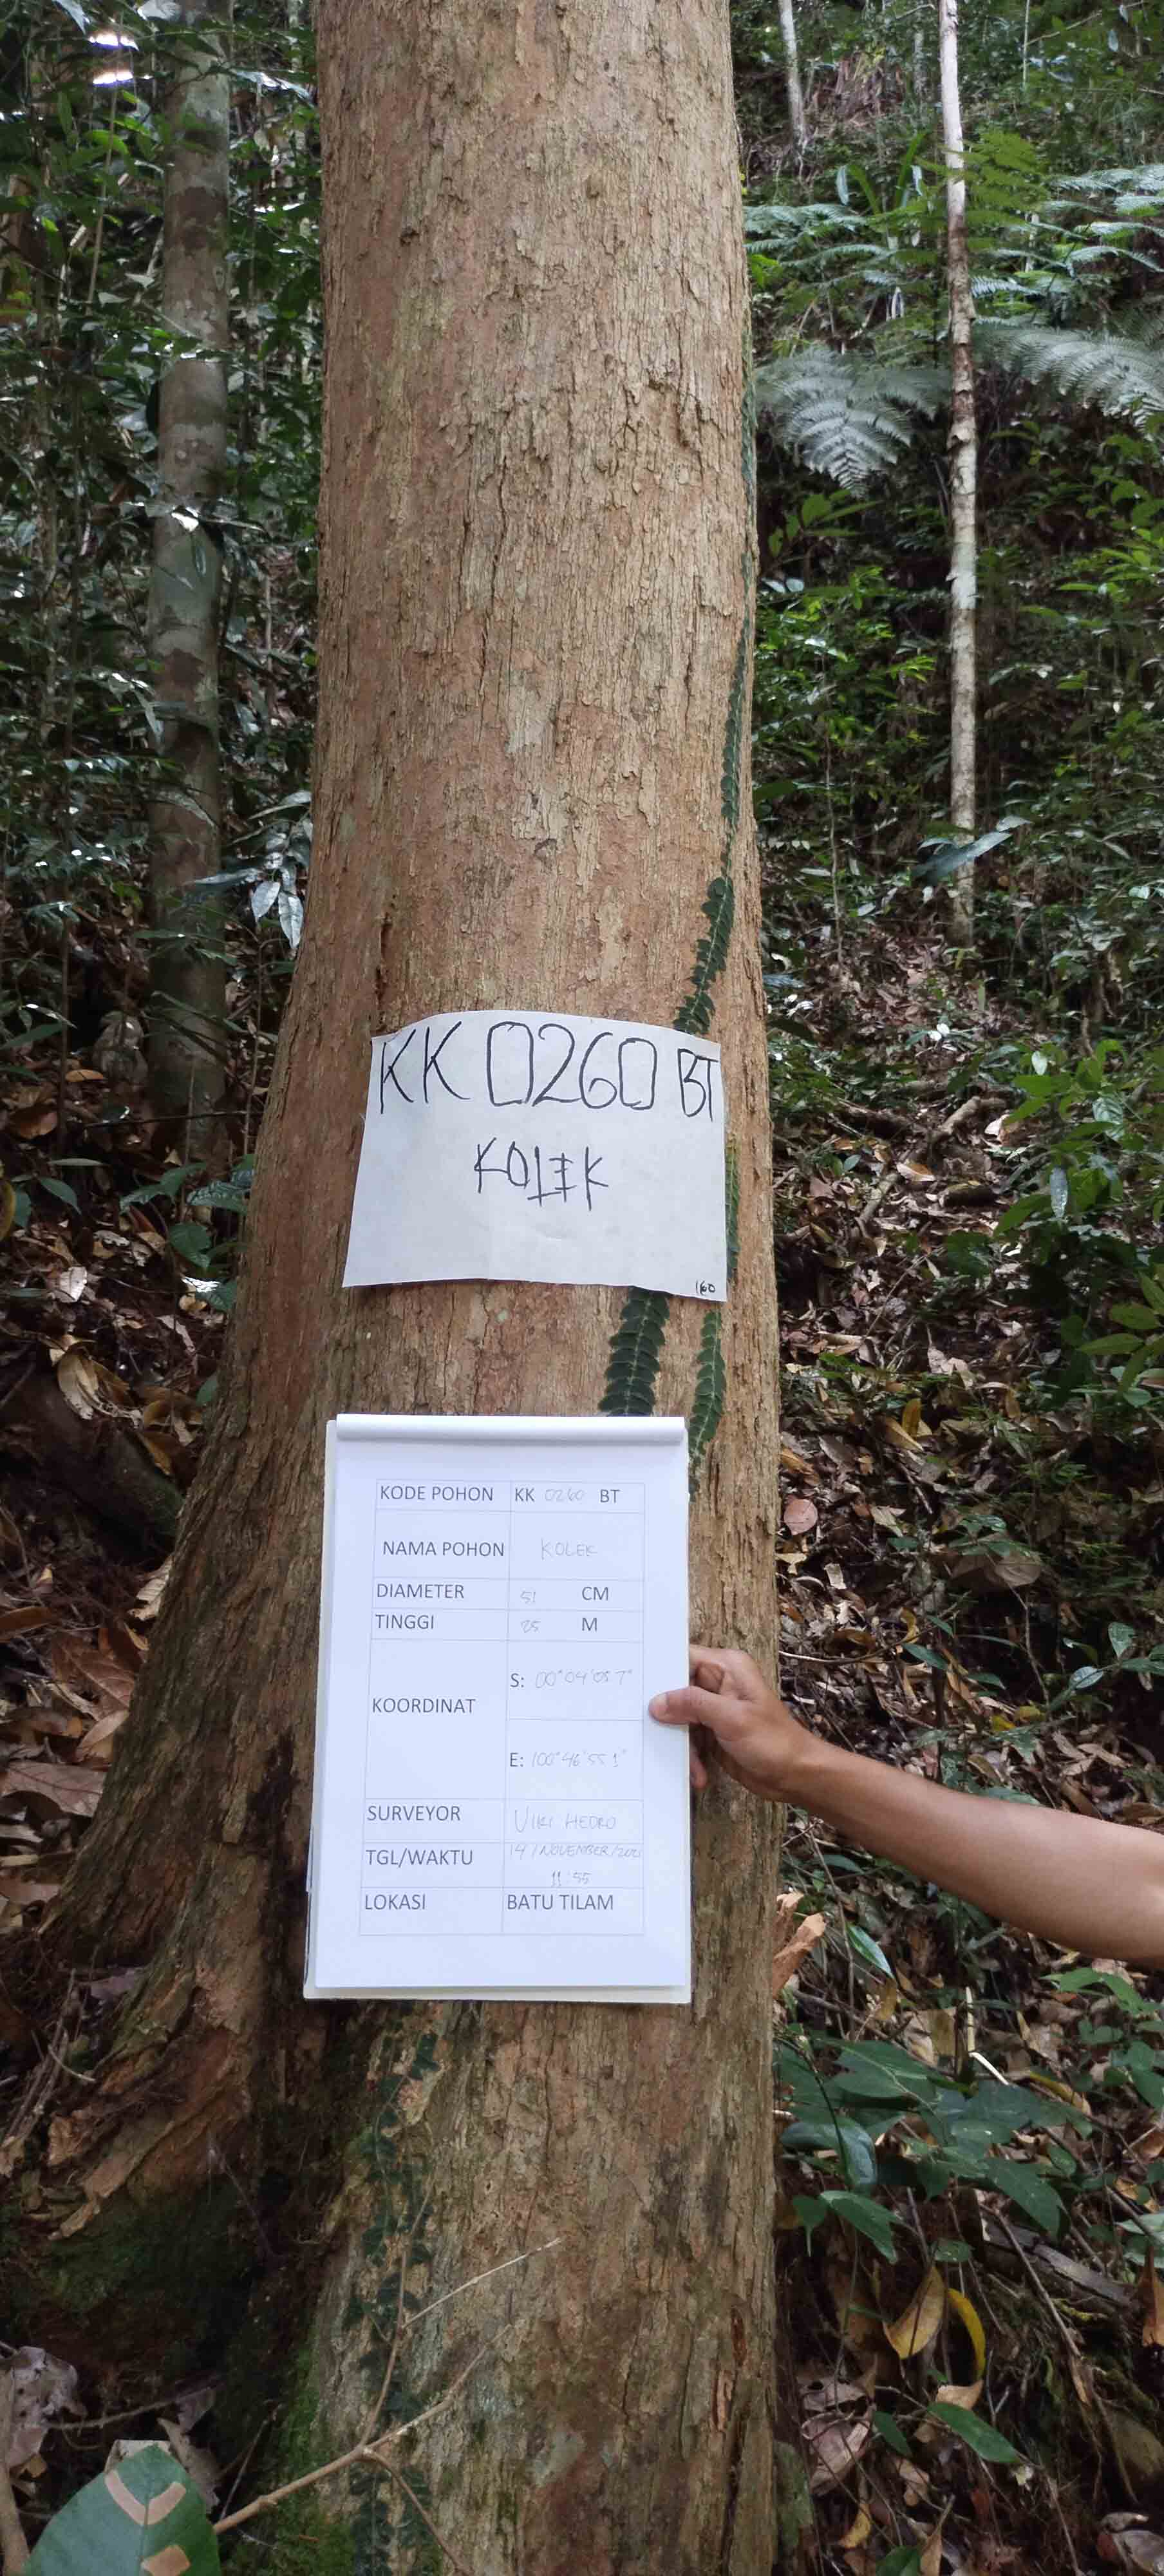 KK 0260 BT
KOLEK
160
KODE POHON KK 0260 BT
NAMA POHON KOLEK
DIAMETER 51 CM
TINGGI 25 M
KOORDINAT
S: 00°04'05 7"
E: 100°46'55 1"
SURVEYOR VIKI HEDRO
TGL/WAKTU 19/NOVEMBER/
11:55
LOKASI BATU TILAM